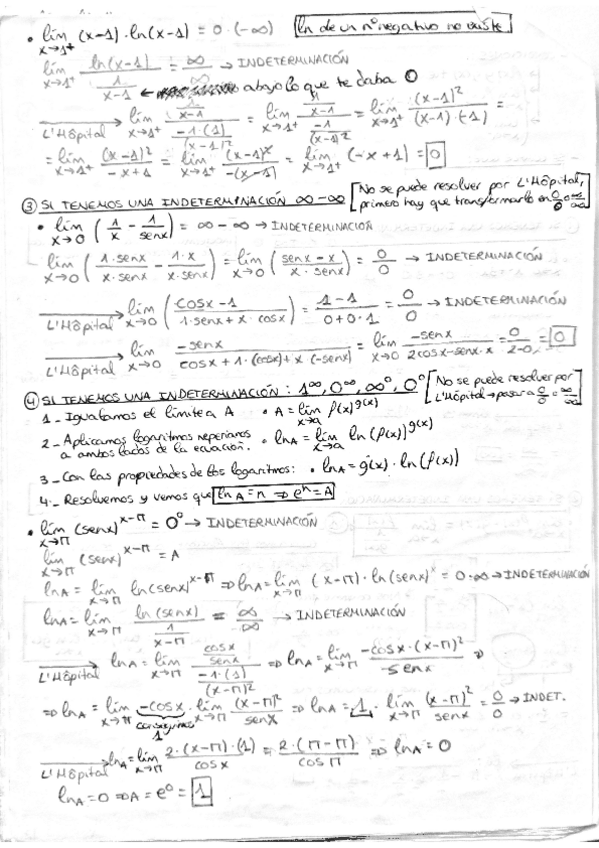 • lím x→1⁺ (x-1)·ln(x-1) = 0·(-∞) [ln de un nº negativo no existe]
lím x→1⁺ ln(x-1) / (1/(x-1)) = ∞/∞ → INDETERMINACIÓN
← abajo lo que te daba 0
L'Hôpital → lím x→1⁺ (1/(x-1)) / (-1·(1)/(x-1)²) = lím x→1⁺ (1/(x-1)) / (-1/(x-1)²) = lím x→1⁺ (x-1)²/((x-1)·(-1)) =
= lím x→1⁺ (x-1)²/(-x+1) = lím x→1⁺ (x-1)²/(-(x-1)) = lím x→1⁺ (-x+1) = 0
③ SI TENEMOS UNA INDETERMINACIÓN ∞-∞ [No se puede resolver por L'Hôpital,
primero hay que transformarlo en 0/0 o ∞/∞]
• lím x→0 (1/x - 1/senx) = ∞-∞ → INDETERMINACIÓN
lím x→0 (1·senx/x·senx - 1·x/x·senx) = lím x→0 (senx-x / x·senx) = 0/0 → INDETERMINACIÓN
L'Hôpital → lím x→0 (cosx-1 / 1·senx+x·cosx) = 1-1/0+0·1 = 0/0 → INDETERMINACIÓN
L'Hôpital → lím x→0 -senx / cosx+1·(cosx)+x·(-senx) = lím x→0 -senx / 2cosx-senx·x = 0/2-0 = 0
④ SI TENEMOS UNA INDETERMINACIÓN: 1^∞, 0^∞, ∞^0, 0^0 [No se puede resolver por
L'Hôpital → pasar a 0/0 = ∞/∞]
1_ Igualamos el límite a A • A = lím x→a f(x)^g(x)
2_ Aplicamos logaritmos neperianos a ambos lados de la ecuación. • lnA = lím x→a ln (f(x))^g(x)
3_ Con las propiedades de los logaritmos: • lnA = g(x)·ln(f(x))
4_ Resolvemos y vemos que lnA = n ⇒ eⁿ = A
• lím x→π (senx)^(x-π) = 0⁰ → INDETERMINACIÓN
lím x→π (senx)^(x-π) = A
lnA = lím x→π ln(senx)^(x-π) ⇒ lnA = lím x→π (x-π)·ln(senx) = 0·∞ → INDETERMINACIÓN
lnA = lím x→π ln(senx) / (1/(x-π)) = ∞/∞ → INDETERMINACIÓN
L'Hôpital → lnA = lím x→π (cosx/senx) / (-1·(1)/(x-π)²) ⇒ lnA = lím x→π -cosx·(x-π)² / senx ⇒
⇒ lnA = lím x→π -cosx · lím x→π (x-π)²/senx ⇒ lnA = 1· lím x→π (x-π)²/senx = 0/0 → INDET.
1
L'Hôpital → lnA = lím x→π 2·(x-π)·(1)/cosx = 2·(π-π)/cosπ ⇒ lnA = 0
lnA = 0 ⇒ A = e⁰ = 1